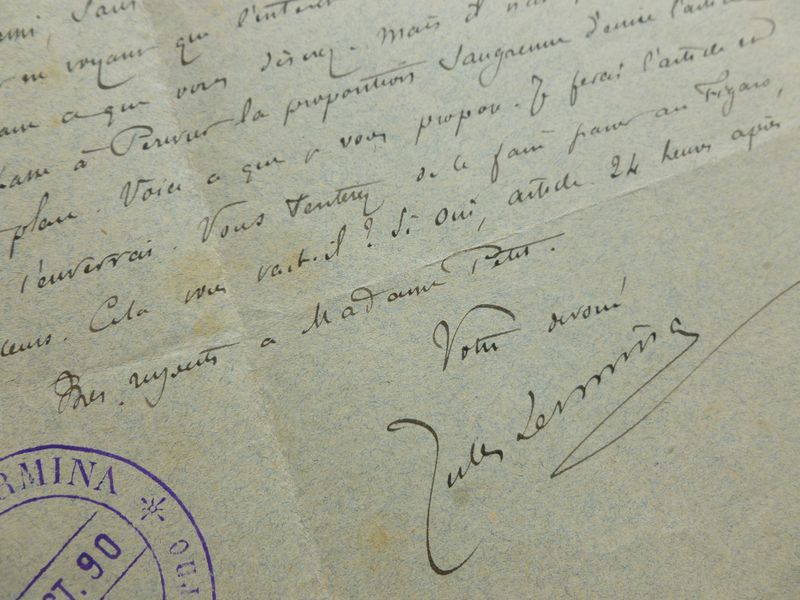 en voyant que l'intérêt
que vous désirez. Mais il n'
à Perivier la proposition saugrenue d'écrire l'article
plan. Voici ce que je vous propose. Je ferai l'article et
l'enverrai. Vous tenterez de le faire passer au Figaro,
Cela vous va-t-il ? Si oui, article 24 heures après
Mes respects à Madame Petit.
Votre dévoué
Jules Lermina
RMINA
CT. 90